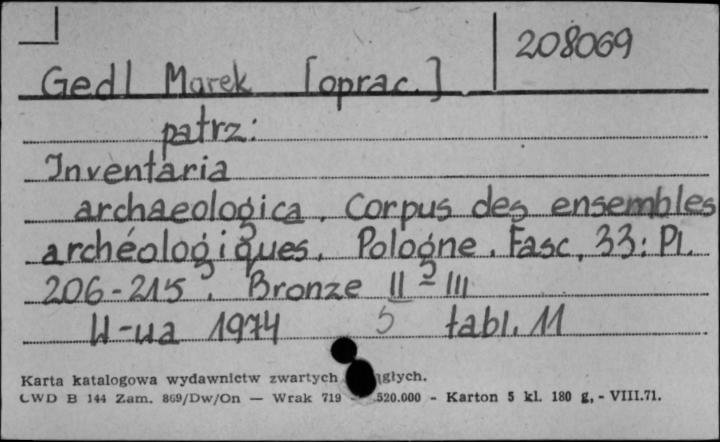 208069
Gedl Marek [oprac.]
patrz:
Inventaria
archaeologica. Corpus des ensembles
archéologiques. Pologne. Fasc. 33: Pl.
206-215. Bronze II - III
W-wa 1974 5 tabl. 11
Karta katalogowa wydawnictw zwartych głych.
CWD B 144 Zam. 869/Dw/On — Wrak 719 520.000 - Karton 5 kl. 180 g, - VIII.71.